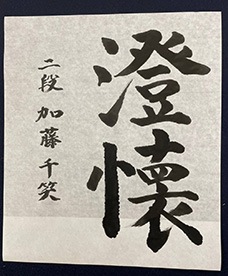 澄懐
二段 加藤千笑